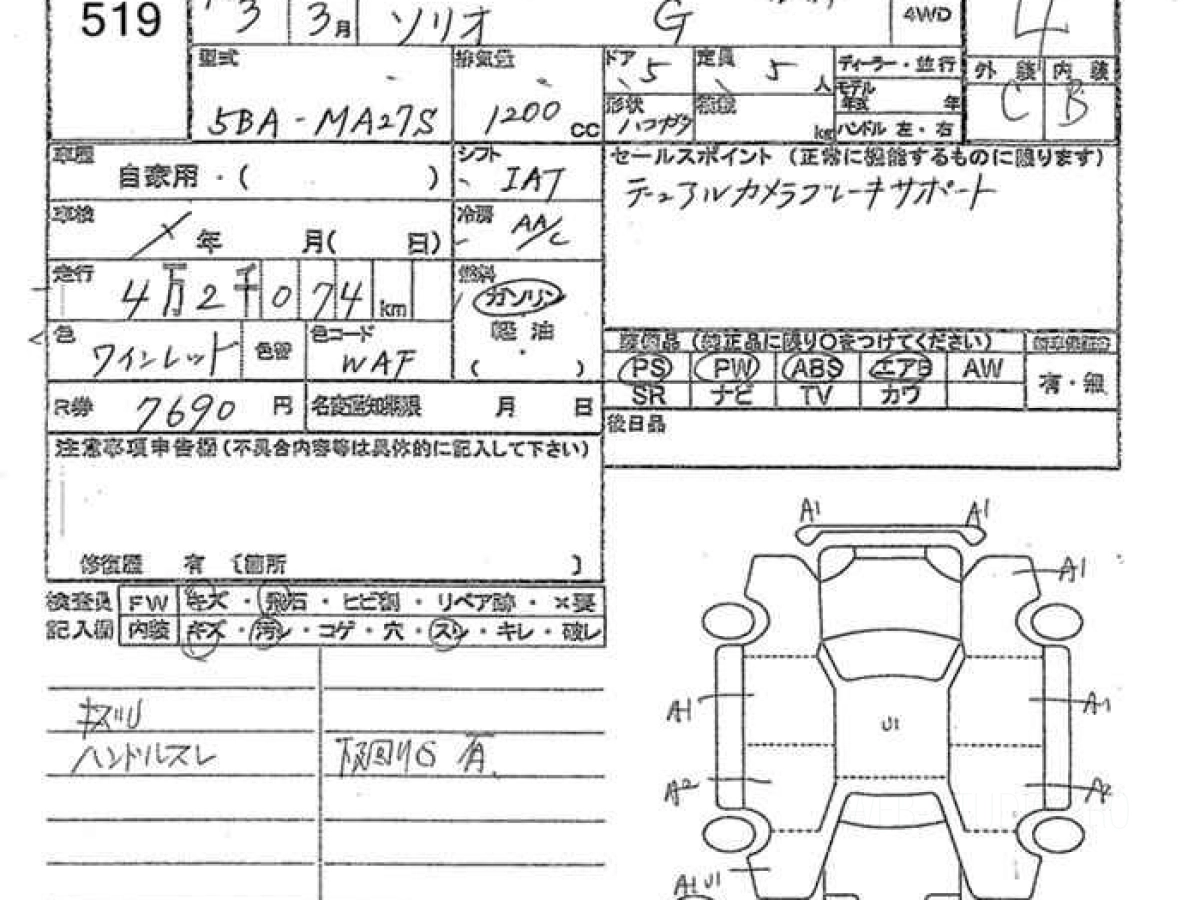 519
3
3月
ソリオ
G
4WD
4
型式
5BA-MA27S
排気量
1200 cc
ドア 5
定員 5 人
形状 ハコガタ
積載 kg
ディーラー・並行
モデル年式 年
ハンドル 左・右
外装 内装
C B
車歴
自家用・( )
シフト
IAT
セールスポイント (正常に機能するものに限ります)
デュアルカメラブレーキサポート
車検
年 月( 日)
冷房
AA/C
走行
4万2千074 km
燃料
ガソリン
軽油
( )
色
ワインレッド
色替
色コード
WAF
装備品 (純正品に限り○をつけてください)
PS PW ABS エアB AW
SR ナビ TV カワ
有・無
R券 7690 円
名変通知期限 月 日
後日品
注意事項申告欄(不具合内容等は具体的に記入して下さい)
修復歴 有 〔箇所 〕
検査員記入欄
FW キズ・飛石・ヒビ割・リペア跡・×要
内装 キズ・汚レ・コゲ・穴・スレ・キレ・破レ
ハンドルスレ
下回りS 有
A1 A1
A1
A1 A1
U1
A2 A2
A1 U1